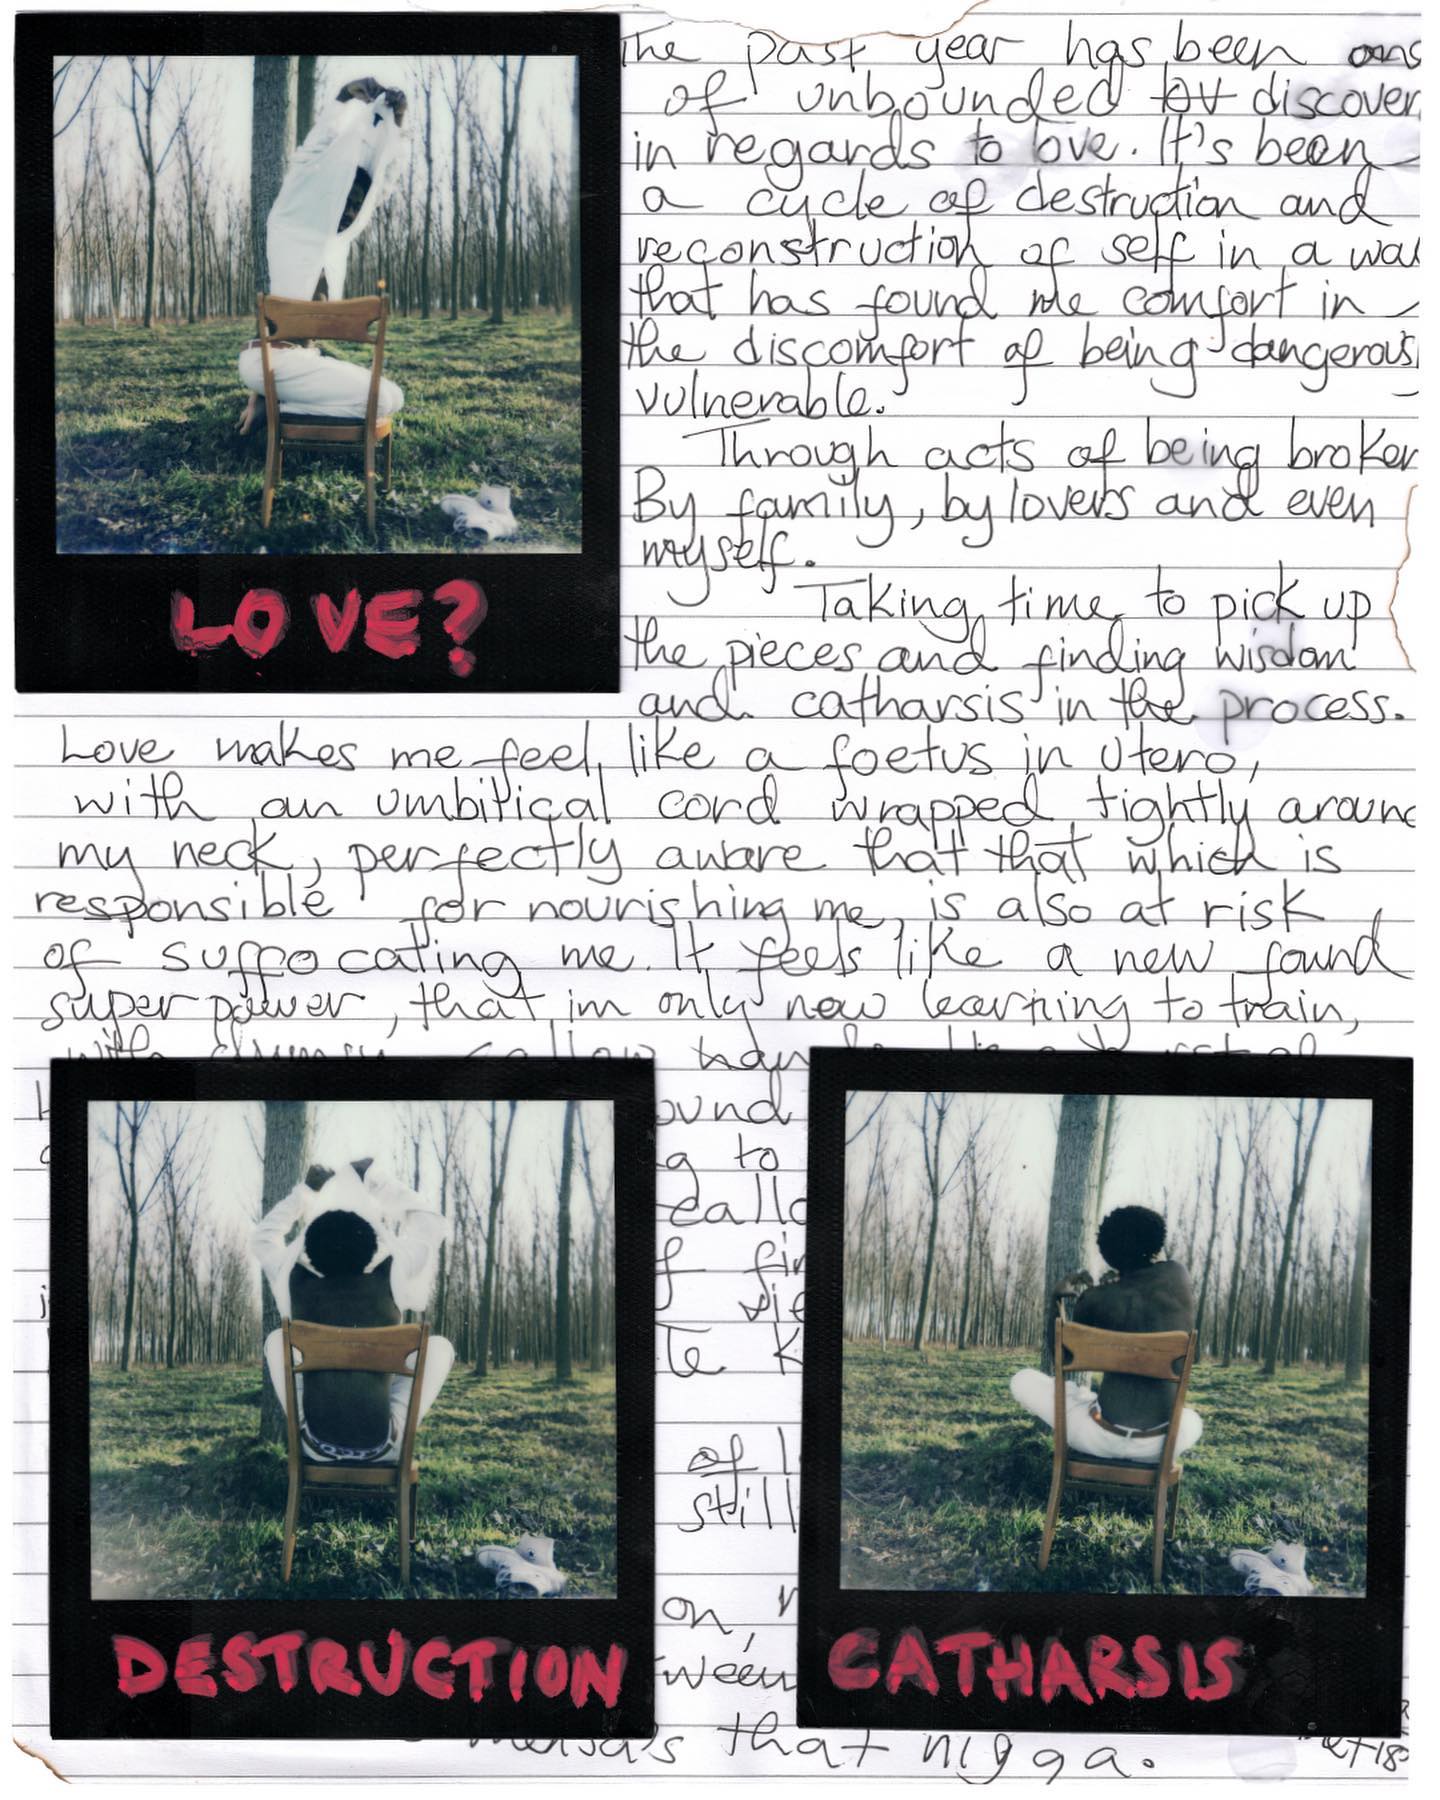 The past year has been one
of unbounded ov discover
in regards to love. It's been
a cycle of destruction and
reconstruction of self in a wa
that has found me comfort in
the discomfort of being dangerous
vulnerable.
Through acts of being broken
By family, by lovers and even
myself.
Taking time to pick up
the pieces and finding wisdom
and catharsis in the process.
LOVE?
Love makes me feel like a foetus in utero,
with an umbilical cord wrapped tightly aroun
my neck, perfectly aware that that which is
responsible for nourishing me, is also at risk
of suffocating me. It feels like a new found
super power, that im only now learning to train,
with clumsy callow
ound
g to
callo
f fin
vie
te k
of l
still
on,
ween
that nigga.
DESTRUCTION
CATHARSIS